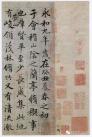 永和九年歲在癸丑暮春之初會
于會稽山陰之蘭亭脩禊事
也羣賢畢至少長咸集此地
有峻領茂林脩竹又有清流激